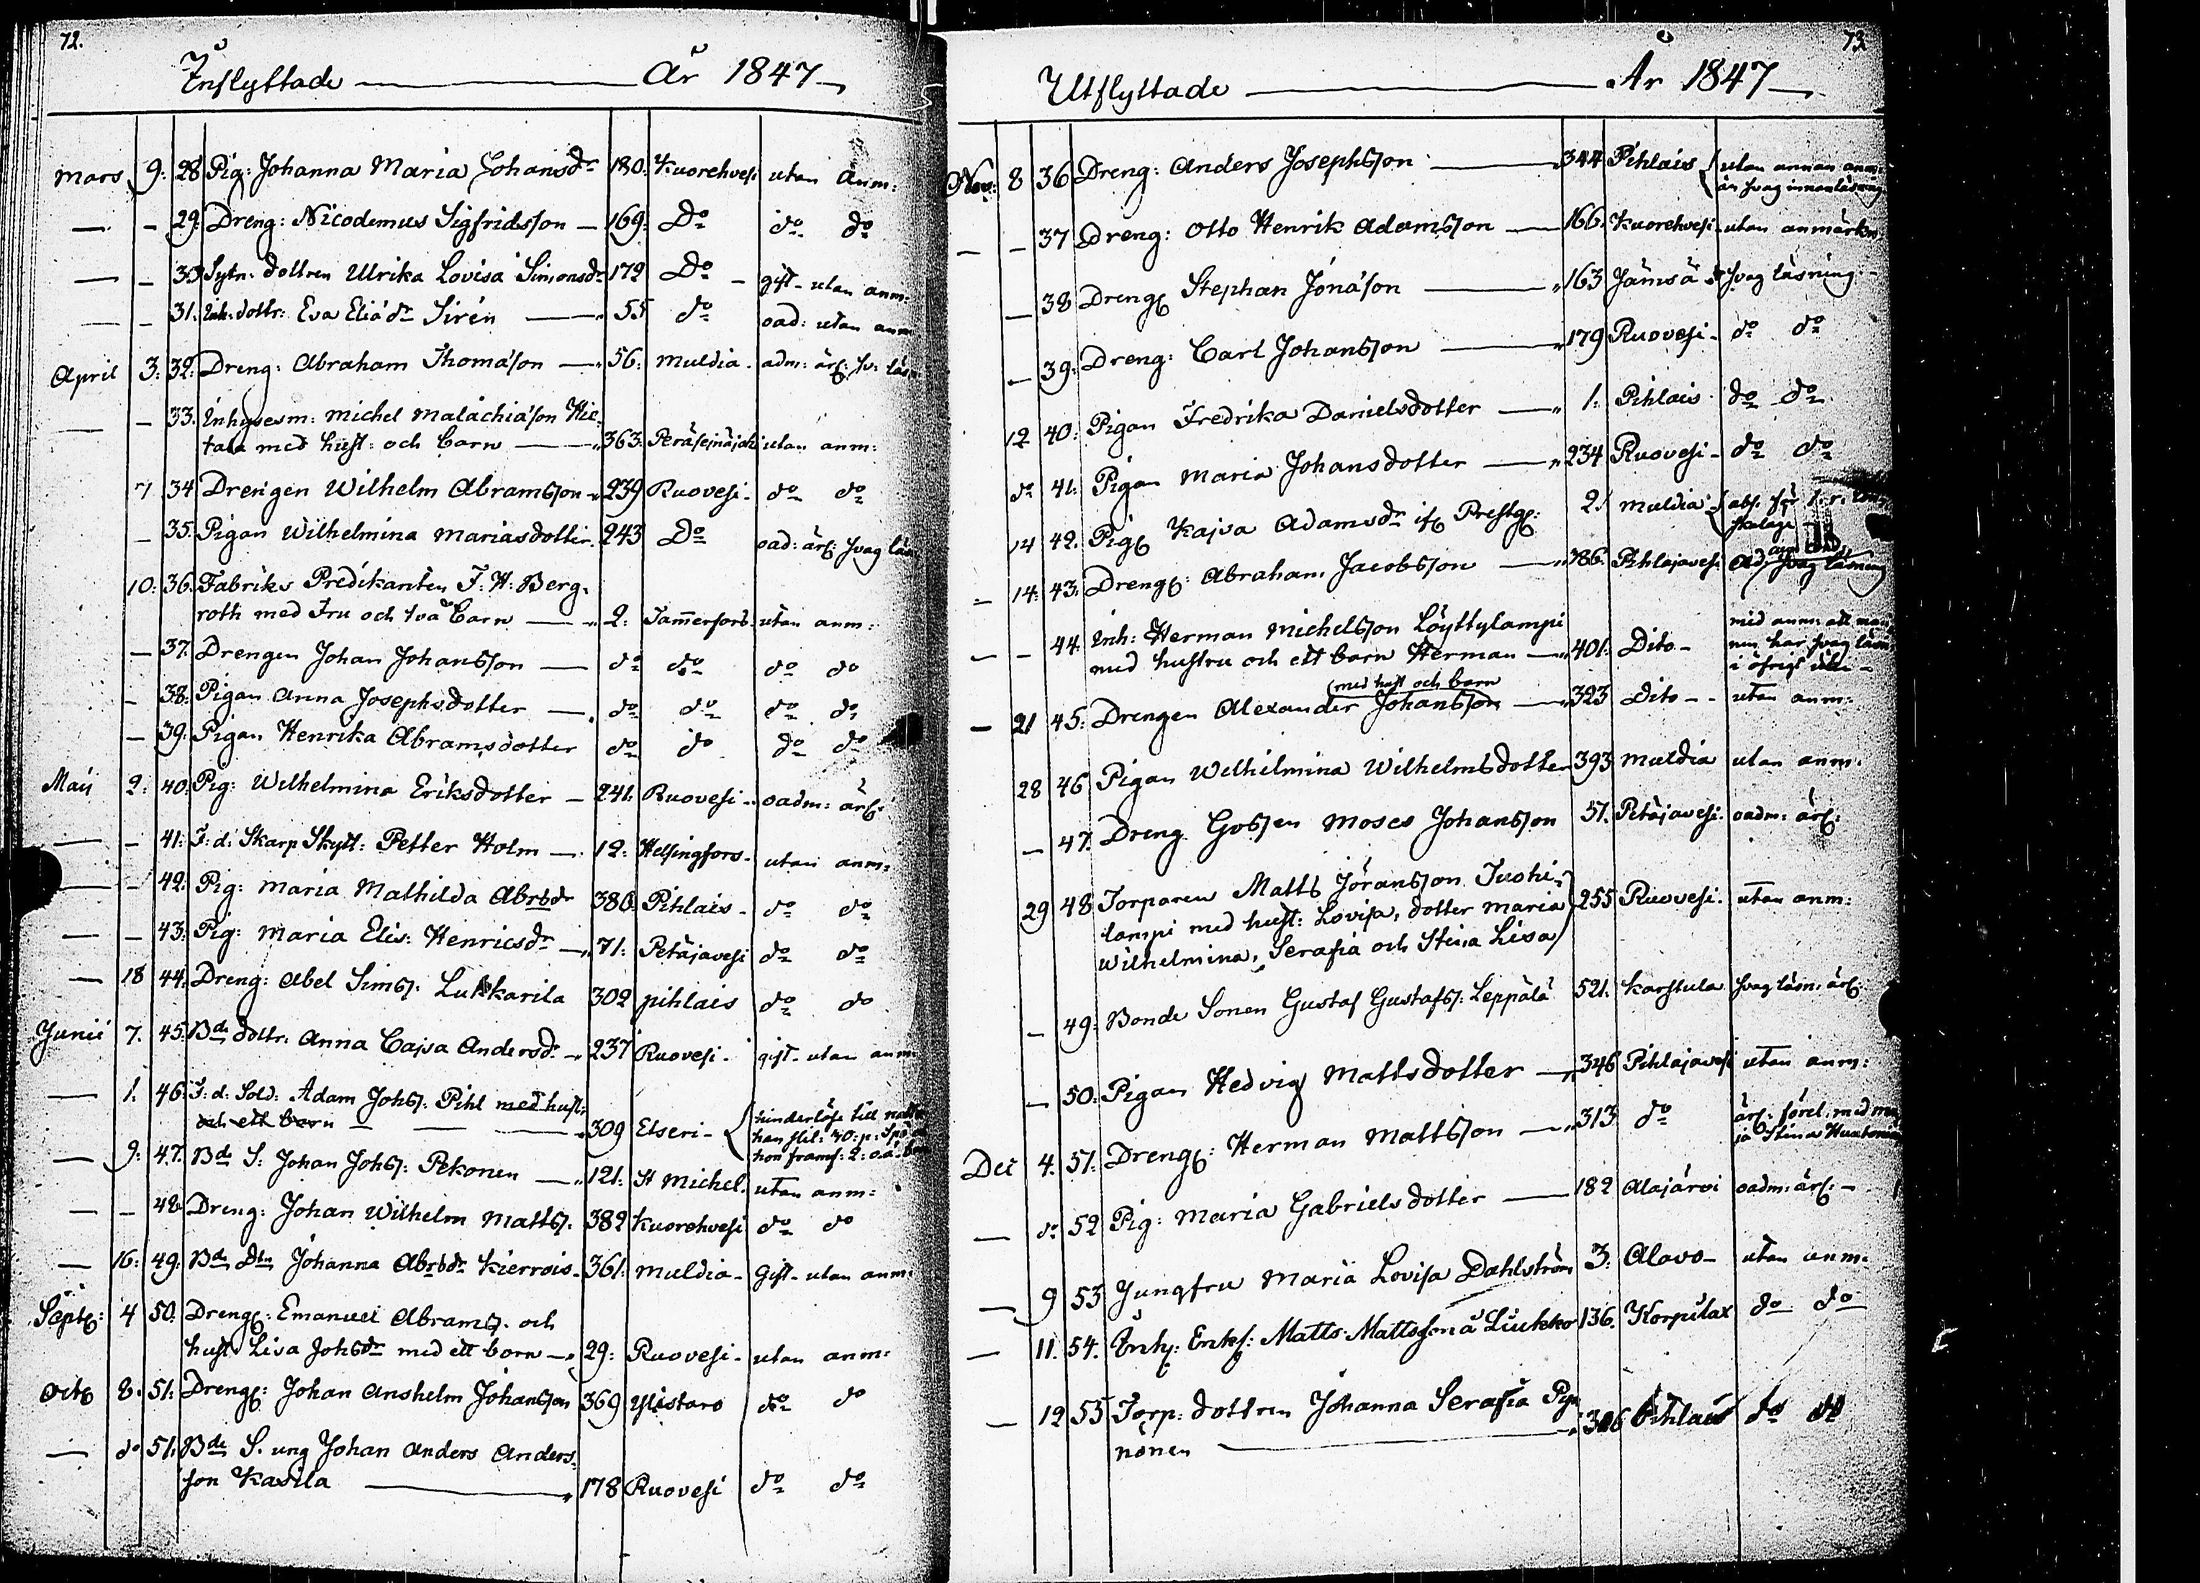 72.
Inflyttade År 1847
Mars 9. 28 Pig: Johanna Maria Johansdr 180. Kuorehvesi utan anm:
— — 29. Dreng: Nicodemus Sigfridsson — 169. Do do do
— — 30 Sytn: dottren Ulrika Lovisa Simonsdr 172 Do — gift utan anm:
— — 31. Inh: dottr: Eva Eliædr Sirén — 55 do oad: utan anm
April 3. 32. Dreng: Abraham Thomasson — 56. Muldia adm: ärf: sv: läsn
— — 33. Inhysesm: Michel Malachiason Hie-
tala med hust: och barn — 363. Peräsejnäjoki utan anm:
7 34 Drengen Wilhelm Abramsson 239 Ruovesi do do
— 35. Pigan Wilhelmina Mariasdotter 243 Do oad: ärf: svag läs
10. 36. Fabriks Predikanten F: H: Berg-
roth med Fru och två barn — 2. Tammerfors utan anm:
— 37. Drengen Johan Johansson — do do do do
— 38. Pigan Anna Josephsdotter — do do do do
— 39. Pigan Henrika Abramsdotter do do do do
Maij 2. 40. Pig: Wilhelmina Eriksdotter — 241. Ruovesi oadm: ärf:
— — 41. F: d: Skarp Skytt: Petter Holm — 12. Helsingfors utan anm:
— — 42. Pig: Maria Mathilda Abrsdr 380. Pihlais do do
— — 43. Pig: Maria Elis: Henricsdr — 71. Petäjavesi do do
— 18 44. Dreng: Abel Sims: Lukkarila 302 pihlais do do
Junii 7. 45. Bde dottr: Anna Cajsa Andersdr 237 Ruovesi gift utan anm
— 1. 46. F: d: Sold: Adam Johs: Pihl med hust:
och ett barn — — — 309 Etseri hinderlöse till
— 9. 47. Bde S: Johan Johs: Pekonen — 121. St Michel. utan anm:
— — 48. Dreng: Johan Wilhelm Matts: 382 Kuorehvesi do do
— 16. 49. Bde Dtn Johanna Abrsdr Kierrois 361. Muldia Gift utan anm:
Septr: 4 50. Drengr: Emanuel Abrams: och
hustr Lisa Johsdr med ett barn — 29. Ruovesi utan anm:
Octb 8. 51. Drengr: Johan Anshelm Johansson 369 Ylistaro do do
— do 51. Bde S. ung Johan Anders Anders-
son Kasila — 178 Ruovesi do do
73
Utflyttade År 1847
Nov: 8 36 Dreng: Anders Josephsson — 344 Pihlais utan annan anm:
än svag innanläsning
— — 37 Dreng: Otto Henrik Adamsson — 166. Kuorehvesi utan anmärkn:
— 38 Drengr Stephan Jonasson — 163 Jämsä svag läsning
— 39. Dreng: Carl Johansson — 179 Ruovesi do do
12 40. Pigan Fredrika Danielsdotter — 1. Pihlais do do
do 41. Pigan Maria Johansdotter — 234 Ruovesi do do
14 42. Pigr Kajsa Adamsdr ifr Prestgr: 2. Muldia
— 14. 43. Drengr: Abraham Jacobsson — 186. Pihlajavesi Ad svag läsning
— — 44. Inh: Herman Michelsson Löyttylampi
med hustru och ett barn Herman — 401. Dito med anm: att man
nen har svag läsn
i öfrigt
(med hust och barn
— 21 45. Drengen Alexander Johansson — 323 Dito — utan anm:
28 46 Pigan Wilhelmina Wilhelmsdotter 393 Muldia utan anm.
— 47. Dreng Gossen Moses Johansson 51. Petäjavesi oadm: ärf:
29 48 Torparen Matts Jöransson Juohi-
lampi med hust: Lovisa, dotter Maria 255 Ruovesi utan anm:
Wilhelmina, Serafia och Stina Lisa
— 49. Bonde Sonen Gustaf Gustafs: Leppälä 521. Karstula svag läsn: ärf:
— 50. Pigan Hedvig Mattsdotter — 346 Pihlajavesi utan anm:
Dec 4. 51. Drengr: Herman Mattsson — 313 do ärf: förel: med
— do 52 Pig: Maria Gabrielsdotter — 182 Alajärvi oadm: ärf: —
— 9 53 Jungfru Maria Lovisa Dahlström 3. Alavo utan anm.
— 11. 54. Inh: Enkl: Matts Mattsson Liukko 136. Korpilax do do
— 12 55 Torp: dottren Johanna Serafia Py-
nönen — 306 Pihlais do do